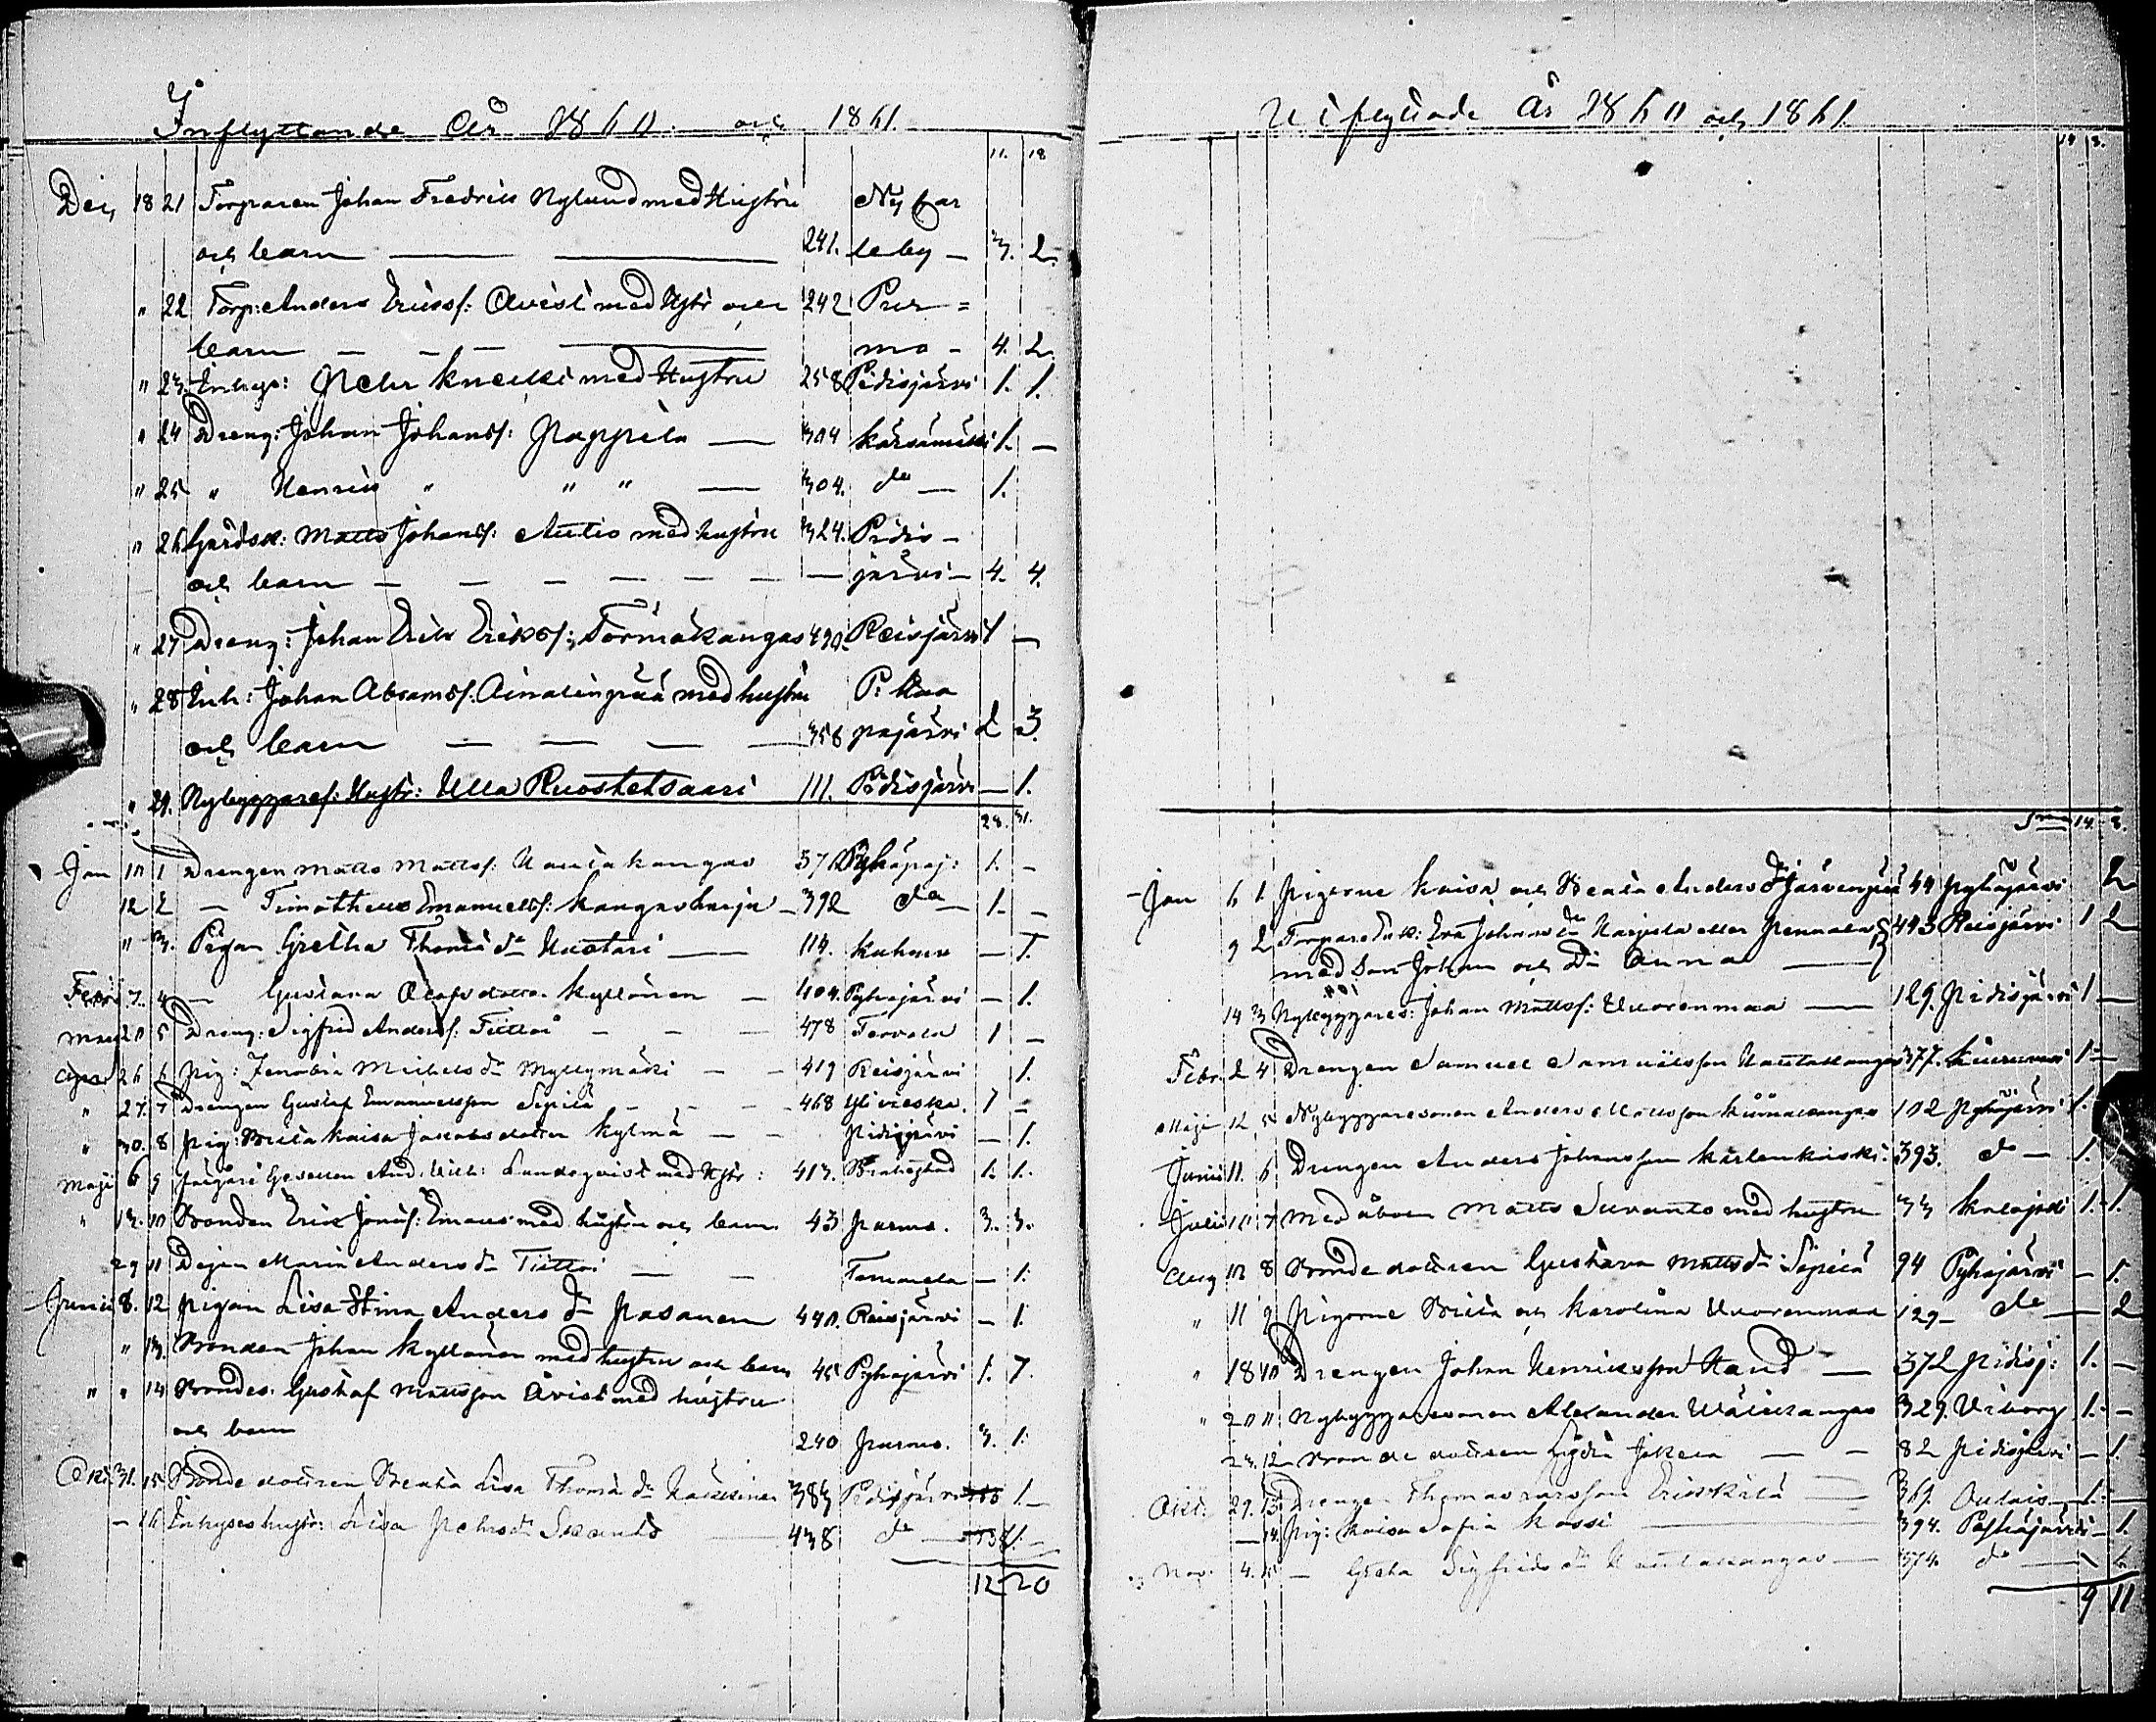 Inflyttande År 1860. och 1861.
11. 18
Dec, 18 21 Torparen Johan Fredrik Nylund med Hustru Ny Car
och barn — — 241. leby — 3. 2.
" 22 Torp: Anders Erikss: Qvist med Hstr och 242 Pur=
barn — — — mo — 4. 2.
" 23. Inhys: Pehr Kneckt med Hustru 258 Pidisjärvi 1. 1.
" 24 Dreng: Johan Johanss: Pappila — 304 Kärsämäki 1. —
" 25 " Henrik " " " — 304. do — 1.
" 26 Gårdsk: Matts Johanss: Autio med hustru 324. Pidis-
och barn — — — — — — järvi — 4. 4.
" 27 Dreng: Johan Erik Erikss: Törmäkangas 430. Reisjärvi 1 —
" 28 Inh: Johan Abramss. Ainalinpää med hustru P: Haa
och barn — — — — 358 pajärvi 2 3.
" 29. Nybyggares: Hustr: Ulla Ruostetsaari 111. Pidisjärvi — 1.
28. 31.
Jan 10 1 Drengen Matts Mattss: Hautakangas 371 Pyhäjaj: 1. —
12 2 — Timotheus Emanuelss: Kangasharju — 392 do — 1. —
" 3. Pigan Gretha Thoms dr Huotari — 114. Kuhmo — 1.
Febr 7. 4 — Gustava Olofsdotter Kyllönen — 404. Pyhäjärvi — 1.
Mars 20 5 Dreng: Sigfrid Anderss: Tiitto — — — 478 Tervola 1 —
Apr 26 6 Pig: Zenobia Michels dr Myllymäki — — 419 Reisjärvi 1.
" 27. 7 Drengen Gustaf Emanuelsson Sipilä — — — 468 Ylivieska. 1 —
" 30. 8 Pig: Brita Kaisa Jakobsdotter Kylmä — — Pidisjärvi — 1.
Maji 6 9 Gesellen And. Wilh: Lundqvist med Hstr: 413. Brahestad 1. 1.
" 13. 10 Bonden Erik Jonss: Emaus med hustru och barn 43 Purmo. 3. 3.
29 11 Dejan Maria Anders dr Tiitto — — Temmela — 1.
Junii 8. 12 Pigan Lisa Stina Anders dr Pasanen 440. Reisjärvi — 1.
" 13. Bonden Johan Kyllönen med hustru och barn 45 Pyhäjärvi 1. 7.
" " 14 Bondes: Gustaf Mattsson Qvist med hustru
och barn 240 Purmo. 3. 1.
Okt. 31. 15 Bondedottren Beata Lisa Thoms dr 383 Pidisjärvi 1 —
— 16 Inhyses hustr: Lisa Pehrs dr 438 do — 1. —
12 20
Utflyttade År 1860 och 1861
14 8.
Sma 14. 8.
Jan 6 1 Pigorne Kaisa och Beata Anders dr Järvenpää 44 Pyhäjärvi 2
9 2 Torpare Enk: Eva Johans dr Harjula eller Pennala 443 Reisjärvi 1 2
med Son Johan och Dr Anna —
14 3 Nybyggares: Johan Mattss: Vuorenmaa — 129. Pidisjärvi 1 —
Febr. 2 4 Drengen Samuel Samuelsson Hautakangas 377. Kiuruvesi 1 —
Maji 12 5 Nybyggaresonen Anders Mattsson 102 Pyhäjärvi 1.
Junii 11. 6 Drengen Anders Johansson Kärlenkoski. 393. do — 1.
Julii 10 7 Medåboen Matts Suvanto med hustru 33 Kalajoki 1. 1.
Aug 10 8 Bondedottren Gustava Matts dr Sipilä 94 Pyhäjärvi — 1.
" 11 9 Pigorne Brita och Karolina Vuorenmaa 129 — do — 2
" 18 10 Drengen Johan Henriksson Rand — 372 Pidisj: 1. —
" 20 11 Nybyggaresonen Alexander 329. Viborg 1. —
23. 12 Bondedottren Lydia Jokela — — 82 Pidisjärvi — 1.
Okt. 29. 13 Drengen Thomas Larsson Eriskälä — 361. Oulais — 1. —
— 14. Pig: Kaisa Sofia Kossi — 394. Pyhäjärvi — 1.
Nov. 4. 15 — Greta Sigfrids dr Hautakangas — 374. do — 1.
9 11